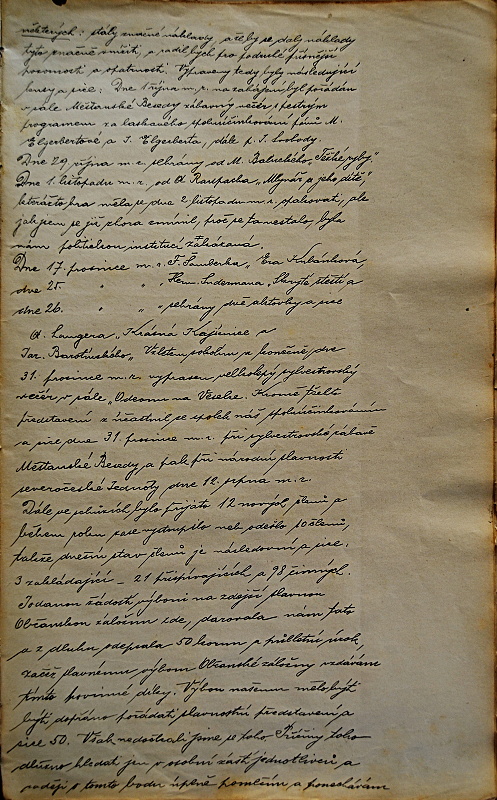 některých: stály značné náklady, ale by se daly náklady
tyto značně snížit, a radil bych pro podruhé přísnější
pozornosti a opatrnosti. Vypraveny tedy byly následující
kusy a sice: Dne 1 října m. r. na zahájení byl pořádán
v sále Měšťanské Besedy zábavný večer s pestrým
programem za laskavého spoluúčinkování pánů M.
Elgerbertové a J. Elgerberta, dále p. J. Svobody.
Dne 29 října m. r. sehrány od M. Baluckého „Těžké ryby."
Dne 1. listopadu m. r., od A Raupacha „Mlynář a jeho dítě",
kterážto hra měla se dne 2 listopadu m. r. opakovat, ale
jak jsem se již shora zmínil, proč se tam nestalo, byla
nám politickou institucí zakázána.
Dne 17. prosince m. r. F. Šamberka „Eva Kubánková,
dve 25. " " Herm. Sudermana, Skryté štěstí a
dne 26. " " sehrány dvě aktovky a sice
A. Langera „Krásná Kajícnice a
Jar. Barotínského" Vzletem sokolím a konečně, dne
31. prosince m. r. vypraven velkolepý sylvestrovský
večer v sále „Odeonu na Veselce. Kromě těchto
představení zúčastnil se spolek náš spoluúčinkováním
a sice dne 31. prosince m. r. při sylvestrovské zábavě
Měšťanské Besedy a pak při národní slavnosti
severočeské Jednoty dne 12. srpna m. r.
Dále ve schůzích bylo přijato 12 nových členů a
během roku zase vystoupilo neb odešlo 10 členů,
takže dnešní stav členů je následovní a sice.
3 zakládající – 21 přispívajících a 98 činných.
Podanou žádostí výboru na zdejší slavnou
Občanskou záložnu zde, darovala nám tato
a z dluhu odepsala 50 korun a půlletní úrok,
začež slavnému výboru Občanské záložny vzdávám
tímto povinné díky. Výboru našemu mělo býti
býti dopřáno pořádati slavnostní představení a
sice 50. Však nedočkali jsme se toho. Příčiny toho
dlužno hledat jen v osobní zášti jednotlivců a
raději o tomto bodu úplně pomlčím a ponechávám